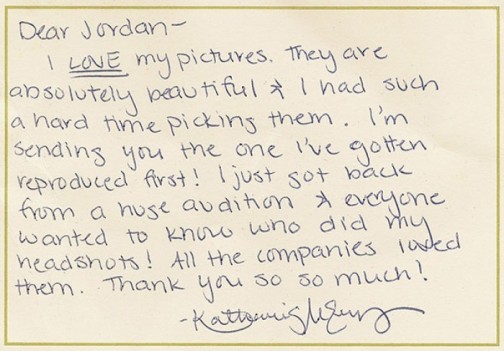 Dear Jordan-
I LOVE my pictures. They are
absolutely beautiful & I had such
a hard time picking them. I'm
sending you the one I've gotten
reproduced first! I just got back
from a huge audition & everyone
wanted to know who did my
headshots! All the companies loved
them. Thank you so so much!